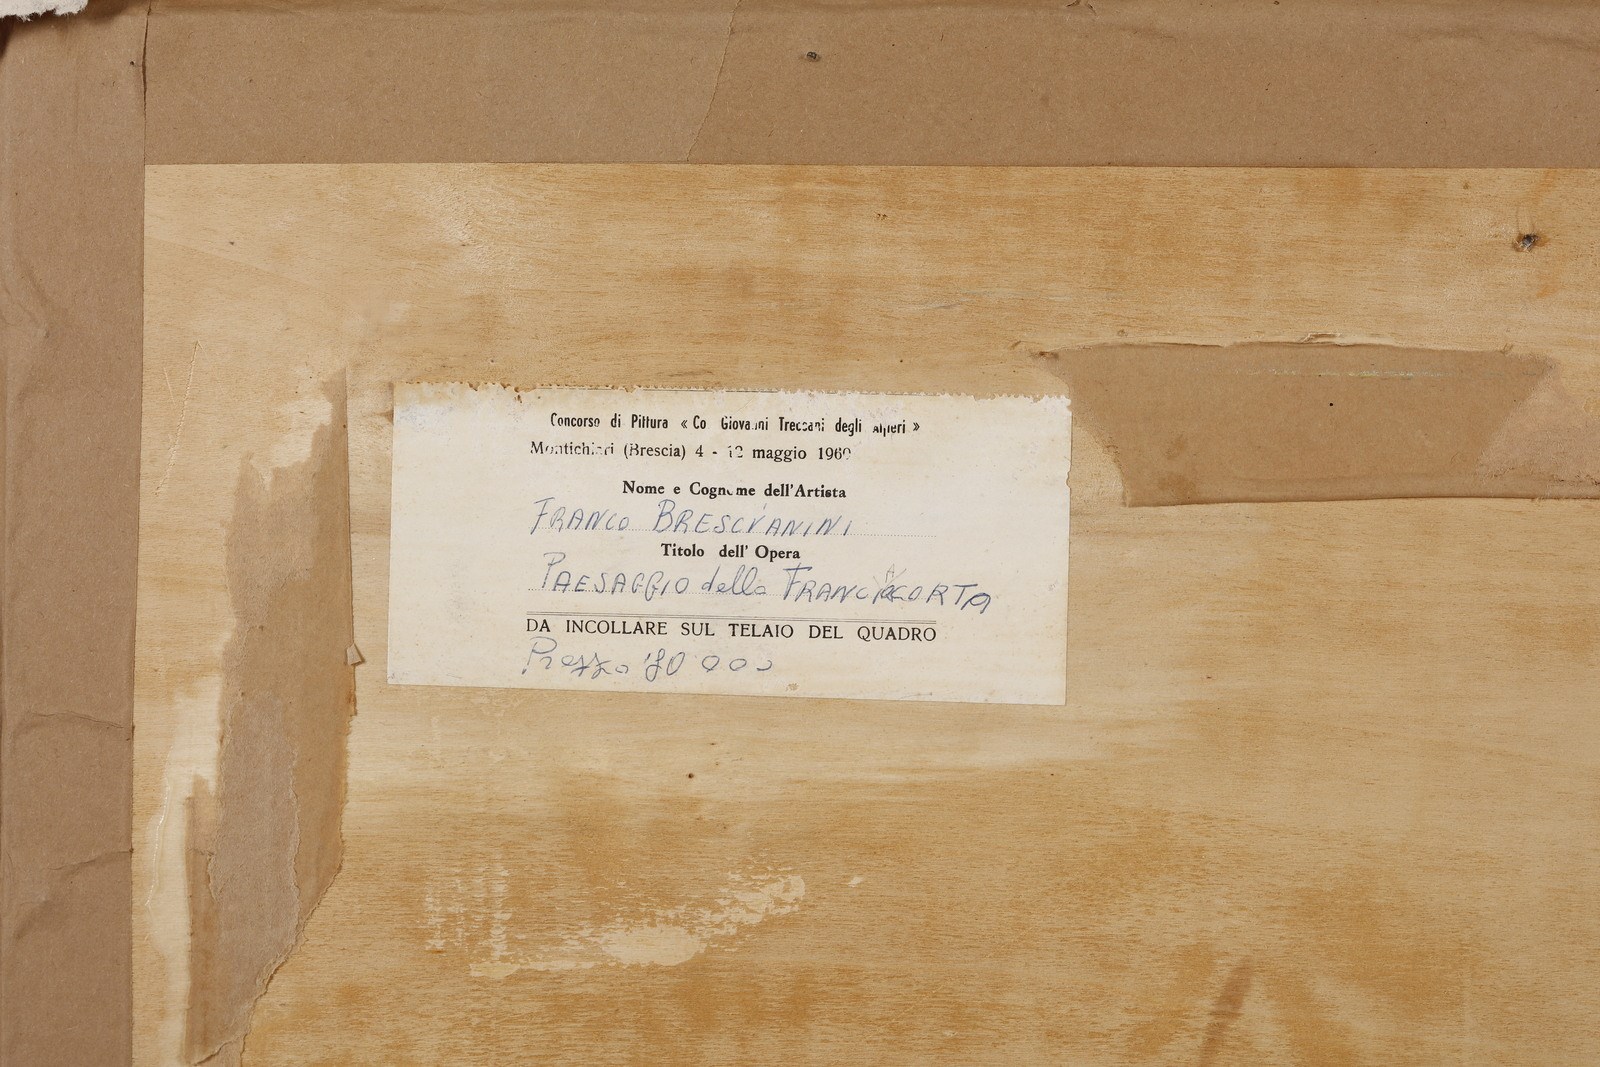 Concorso di Pittura « Co Giovanni Treccani degli Alfieri »
Montichiari (Brescia) 4 - 12 maggio
Nome e Cognome dell'Artista
FRANCO BRESCIANINI
Titolo dell' Opera
PAESAGGIO della FRANCIACORTA
DA INCOLLARE SUL TELAIO DEL QUADRO
Prezzo